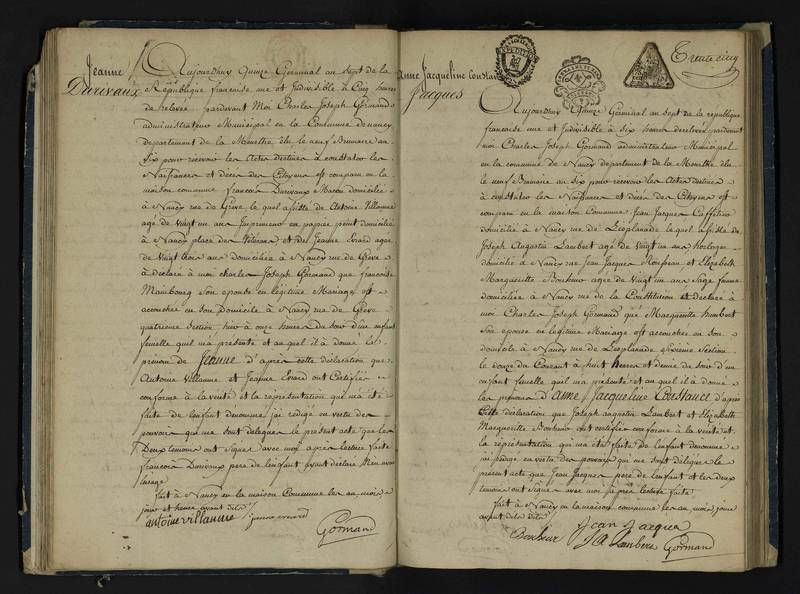 Jeanne
Durivaux
Aujourdhuy Quinze Germinal an Sept de la
République francaise une et Indivisible à Cinq heures
de relevée pardevant Moi Charles Joseph Gormand
administrateur Municipal en la Commune de nancy
departement de la Meurthe élu le neuf Brumaire an
Six pour recevoir les Actes destinés à constater les
Naissances et décès des Citoyens est comparu en la
maison commune francois Durivaux Macon domicilié
à Nancy rue de Grève le quel assisté de Antoine Villaume
agé de vingt un ans Imprimeur en papier peint domicilié
à Nancy place des et de Jeanne Evard agée
de Vingt trois ans domiciliée à Nancy rue de Grève
a déclaré à moi charles Joseph Gormand que francoise
Mainbourg Son épouse en légitime Mariage est
accouchée en Son domicile à Nancy rue de Grève
quatrieme Section hier à onze heures du soir d'un enfant
femelle quil ma présenté et auquel il à donné le
prenom de Jeanne d'après cette déclaration que
Antoine Villaume et Jeanne Evard ont Certifiée
conforme à la verité et la représentation qui ma été
faite de lenfant denommé jai rédigé en vertu des
pouvoirs qui me sont délégués le présent acte que les
Deux temoins ont signés avec moi après lecture faite
francois Durivaux pere de lenfant ayant déclaré n'en avoir
lusage
fait à Nancy en la maison Commune les an, mois
jour et heure avant dits
antoine villaume Gormand
Trente cinq
Anne Jacqueline Constance
Jacques
Aujourdhuy Quinze Germinal an Sept de la republique
francaise une et Indivisible à Six heures de relevée pardevant
moi Charles Joseph Gormand administrateur Municipal
en la commune de Nancy departement de la Meurthe élu
le neuf Brumaire an Six pour recevoir les Actes destinés
à constater les Naissances et décès des Citoyens est
comparu en la maison Commune Jean Jacques Caffetier
domicilié à Nancy rue de Lesplanade le quel assisté de
Joseph Augustin Lambert agé de Vingt un ans horloger
domicilié à Nancy rue Jean Jacques Rousseau, et Elizabeth
Margueritte Bonheur agée de Vingt un ans Sage femme
domiciliée à Nancy rue de la Constitution et déclaré à
moi Charles Joseph Gormand que Margueritte humbert
Son épouse en légitime Mariage est accouchée en Son
domicile à Nancy rue de Lesplanade Section
le douze du Courant à huit heures et demie du Soir d'un
enfant femelle quil ma présenté et au quel il à donné
les prenoms d'Anne Jacqueline Constance d'après
Cette déclaration que Joseph augustin Lambert et Elizabeth
Marguerite Bonheur ont certifiée conforme à la verité et
la réprésentation qui ma été faite de lenfant denommé
jai rédigé en vertu des pouvoirs qui me sont délégués le
présent acte que Jean Jacques pere de lenfant et les deux
temoins ont signés avec moi après lecture faite
fait à Nancy en la maison commune les an, mois, jour
avant dits
Jean Jacques
Bonheur JA Lambert Gormand